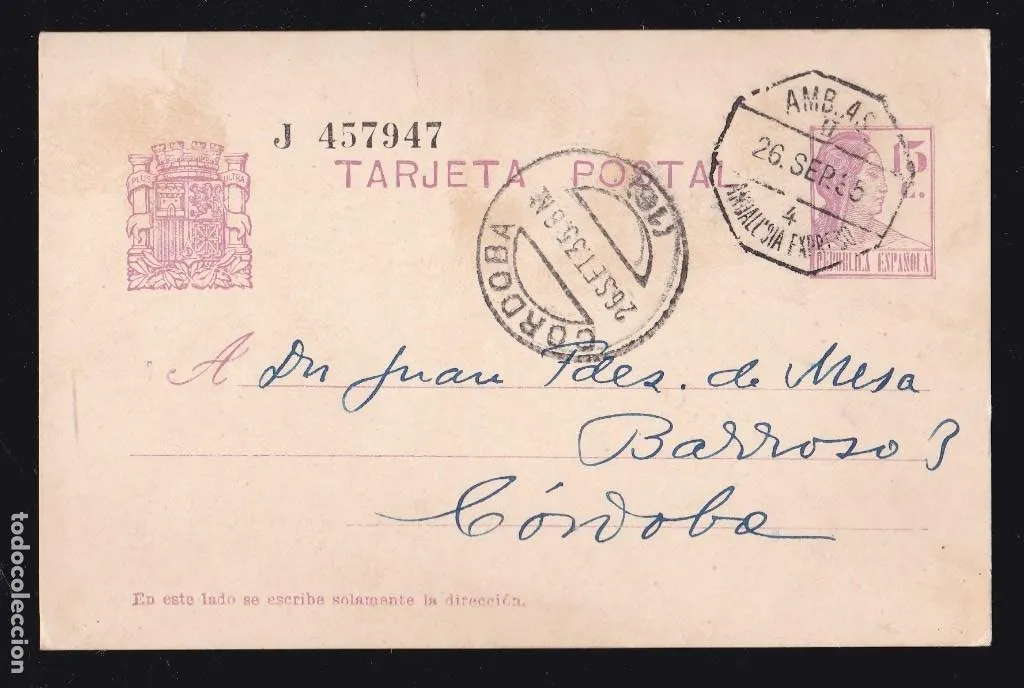 J 457947
TARJETA POSTAL
PLUS ULTRA
15 c.
REPUBLICA ESPAÑOLA
AMB. 4S
26.SEP.35
4
ANDALUCIA EXPRESO
CORDOBA
26.SET.35.8M
A Dn Juan Fdez. de Mesa
Barroso 3
Córdoba
En este lado se escribe solamente la dirección.
todocoleccion